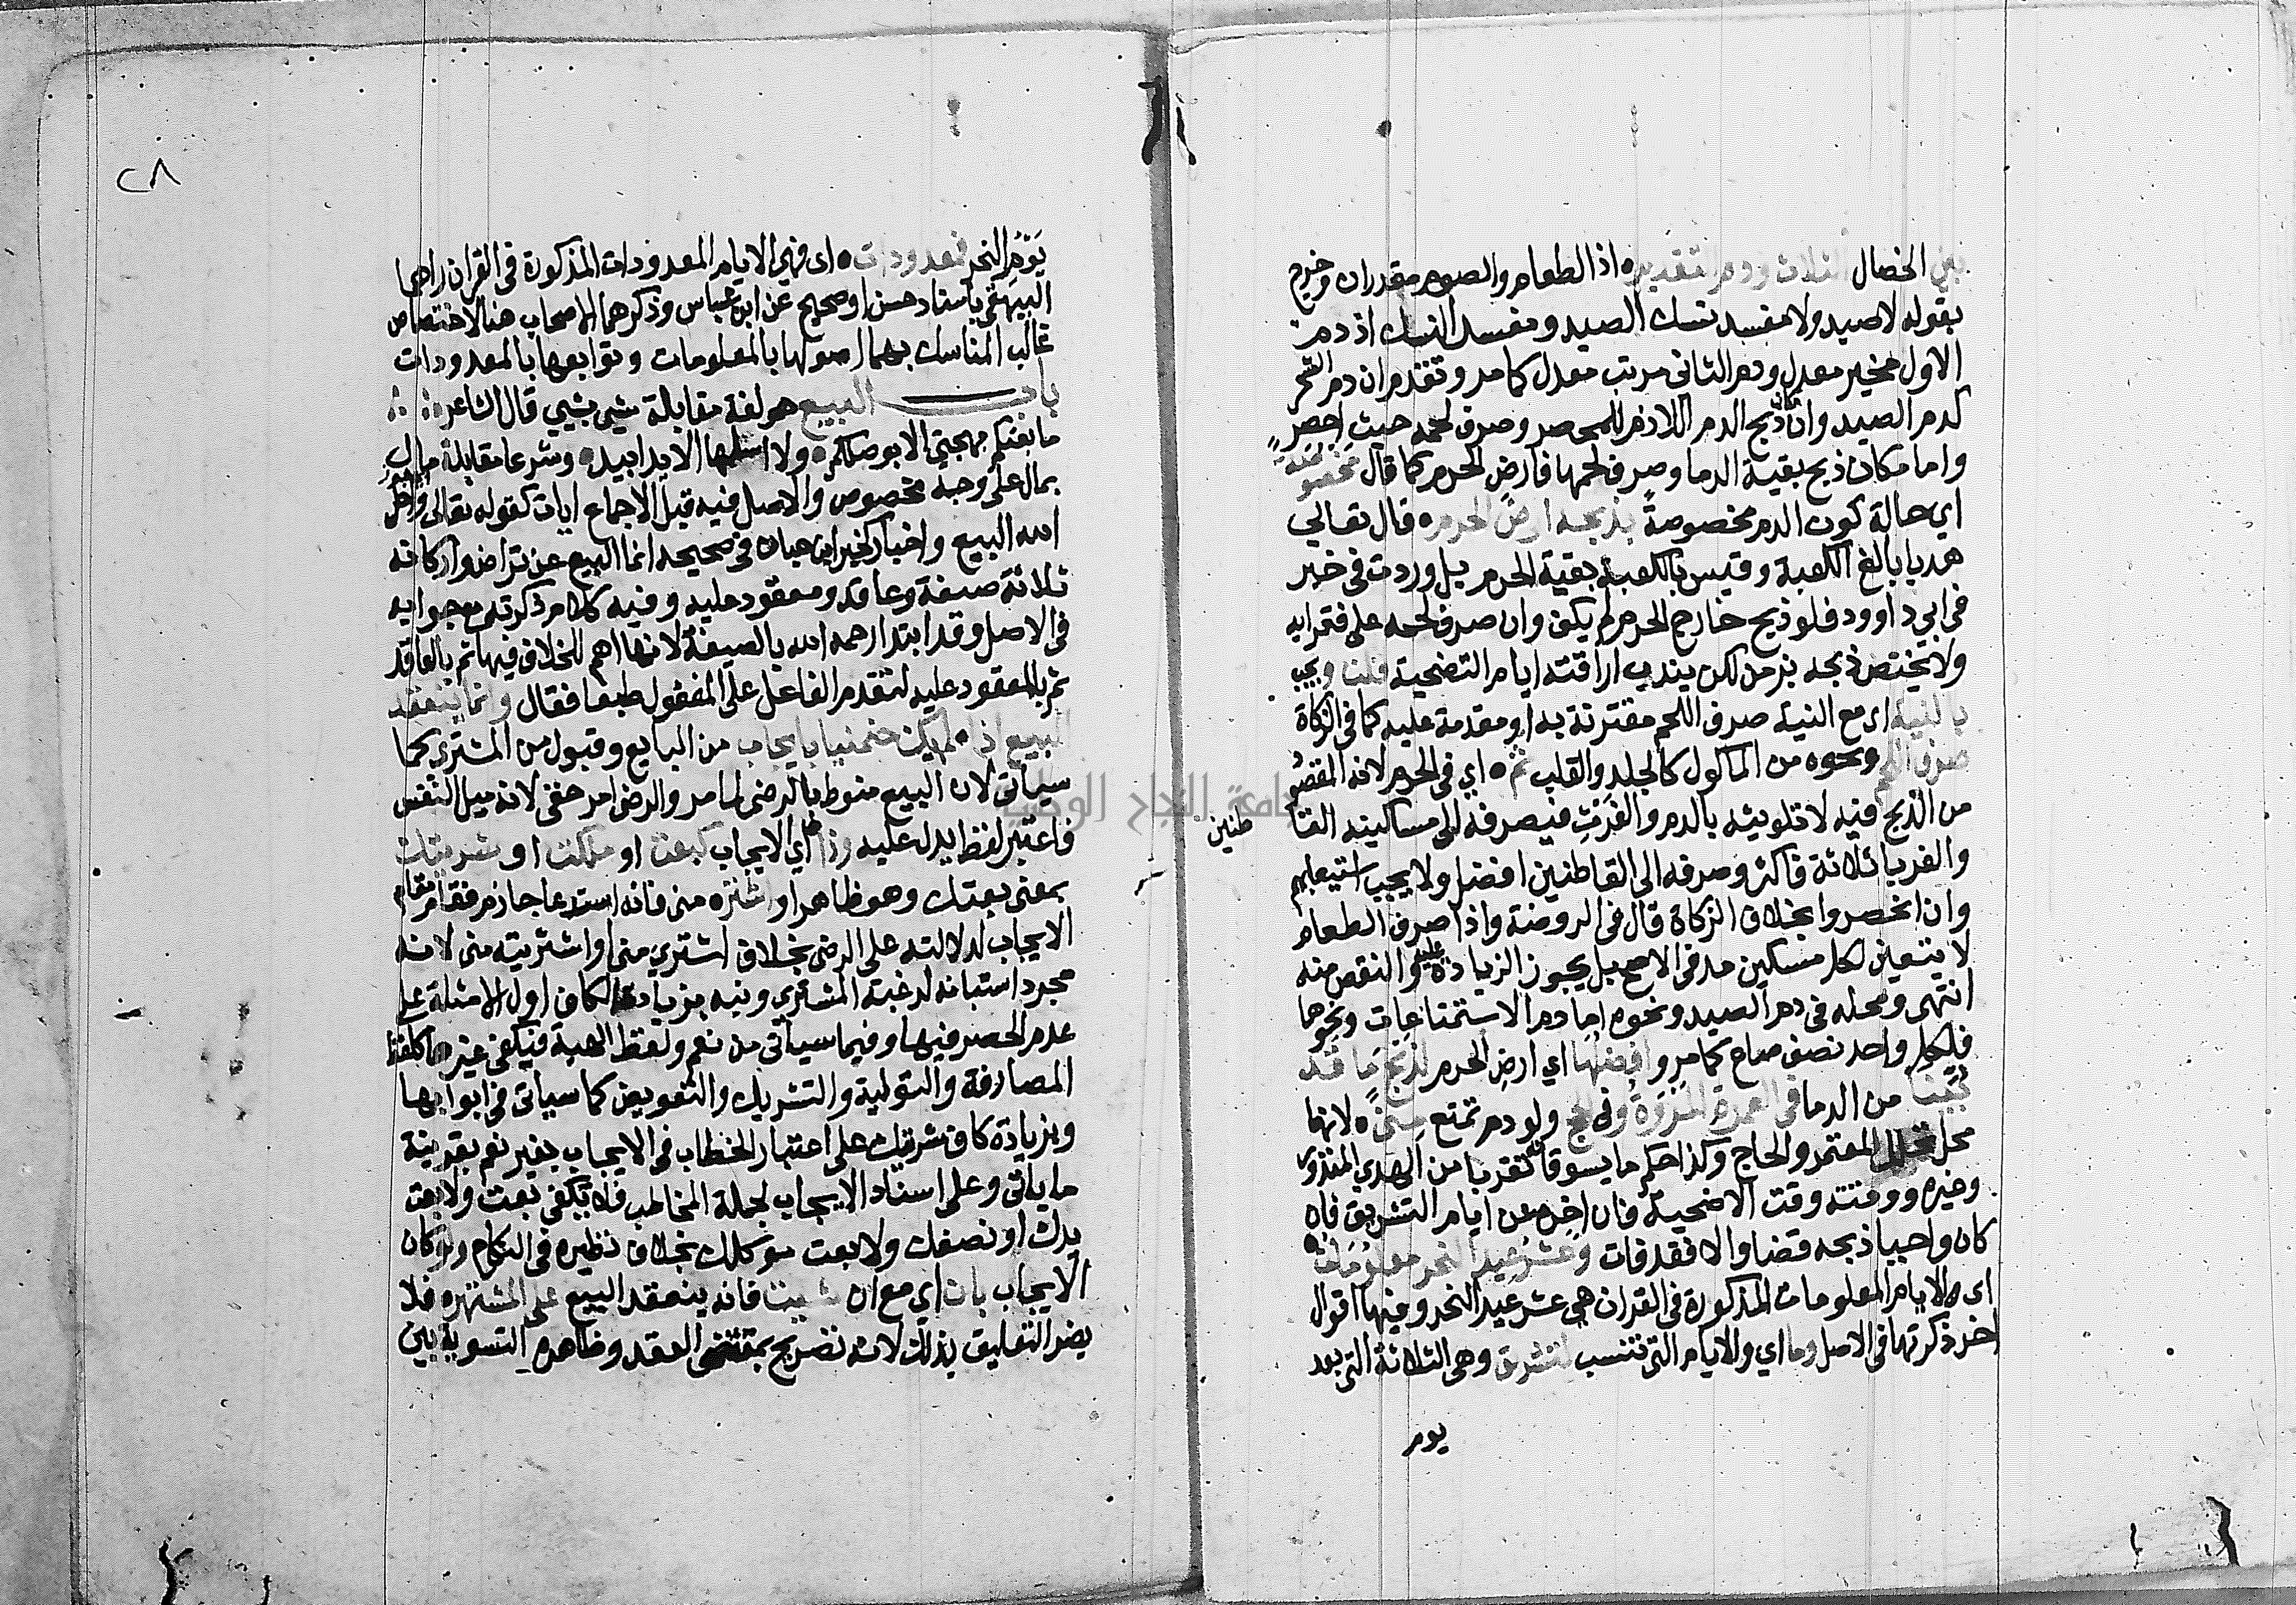 بين الخصال الثلاث ودم التقدير اذ الطعام والصوم مقدران وخرج
بقوله لا صيد ولا مفسد نسك الصيد ومفسد النسك اذ دم
الاول مخير معدل ودم الثاني مرتب معدل كما مر وتقدم ان دم الشجر
كدم الصيد وان ذبح الدم اللازم للمحصر وصرف لحمه حيث احصر
واما مكان ذبح بقية الدما وصرف لحمها فارض الحرم كما قال مخصوصة
اي حالة كون الدم مخصوصة بذبحه ارض الحرم قال تعالي
هديا بالغ الكعبة وقيس بالكعبة بقية الحرم بل وردت في خبر
في ابي داوود فلو ذبح خارج الحرم لم يكف وان صرف لحمه على فقرايه
ولا يختص ذبحه بزمن لكن يندب اراقته ايام التضحية قلت ويجب
بالنية اى مع النية صرف اللحم مقترنة به او مقدمة عليه كما في الزكاة
صرف اللحم ونحوه من الماكول كالجلد والقلب ثم اي في الحرم لانه المقصود
من الذبح فيه لا تلويثه بالدم والفرث فيصرفه الى مساكينه القا
طنين
والغربا ثلاثة فاكثر وصرفه الى القاطنين افضل ولا يجب استيعابهم
وان انحصروا بخلاف الزكاة قال في الروضة واذا صرف الطعام
لا يتعين لكل مسكين مد في الاصح بل يجوز الزيادة عليه والنقص منه
انتهى ومحله في دم الصيد ونحوه اما دم الاستمتاعات ونحوها
فلكل واحد نصف صاع كما مر وافضلها اي ارض الحرم لذبح ما قد
بينا من الدما في العمرة المروة وفي الحج ولو دم تمتع منى لانها
محل تحلل المعتمر والحاج وكذا حكم ما يسوقانه تقربا من الهدي المنذور
وغيره ووقته وقت الاضحية فان اخره عن ايام التشريق فان
كان واجبا ذبحه قضا والا فقد فات وعشر عيد النحر معلومات
اى والايام المعلومات المذكورة في القران هي عشر عيد النحر وفيها اقوال
اخر ذكرتها في الاصل وما اي والايام التي تنسب لتشريق وهي الثلاثة التي بعد
يوم
٢٨
يوم النحر فمعدودات اى فهي الايام المعدودات المذكورة في القران رواهما
البيهقي باسناد حسن او صحيح عن ابن عباس وذكرهما الاصحاب هنا لاختصاص
غالب المناسك بهما اصولها بالمعلومات وتوابعها بالمعدودات
باب البيع هو لغة مقابلة شيي بشيي قال الشاعر
ما بعتكم مهجتي الا بوصلكم ولا اسلمها الا يدا بيد وشرعا مقابلة مال
بمال على وجه مخصوص والاصل فيه قبل الاجماع ايات كقوله تعالى واحل
الله البيع واخبار كخبر ابن حبان في صحيحه انما البيع عن تراض واركانه
ثلاثة صيغة وعاقد ومعقود عليه وفيه كلام ذكرته مع جوابه
في الاصل وقد ابتدا رحمه الله بالصيغة لانها اهم للخلاف فيها ثم بالعاقد
ثم بالمعقود عليه لتقدم الفاعل على المفعول طبعا فقال وانما ينعقد
البيع اذا لم يكن ضمنيا بايجاب من البايع وقبول من المشتري كما
سياتي لان البيع منوط بالرضى لما مر والرضى امر خفي لانه ميل النفس
فاعتبر لفظ يدل عليه وذا اي الايجاب كبعت او ملكت او شريت
بمعنى بعتك وهو ظاهر او اشتره مني فانه استدعا جازم فقام مقام
الايجاب لدلالته على الرضى بخلاف اشتري مني او اشتريته مني لانه
مجرد استبانه لرغبة المشتري ونبه بزيادة الكاف اول الامثلة على
عدم الحصر فيها وفيما سياتي من نعم ولفظ الهبة فيكفي غيرها كلفظ
المصارفة والتولية والتشريك والتفويض كما سياتي في ابوابها
وبزيادة كاف شريتك على اعتبار الخطاب في الايجاب بغير نعم بقرينة
ما ياتي وعلى اسناد الايجاب لجملة المخاطب فلا يكفي بعت ولا بعت
يدك او نصفك ولا بعت موكلك بخلاف نظيره في النكاح ولو كان
الايجاب بان اي مع ان شيت فانه ينعقد البيع على المشتهر فلا
يضر التعليق بذلك لانه تصريح بمقتضى العقد وظاهره التسوية بين
جامعة النجاح الوطنية